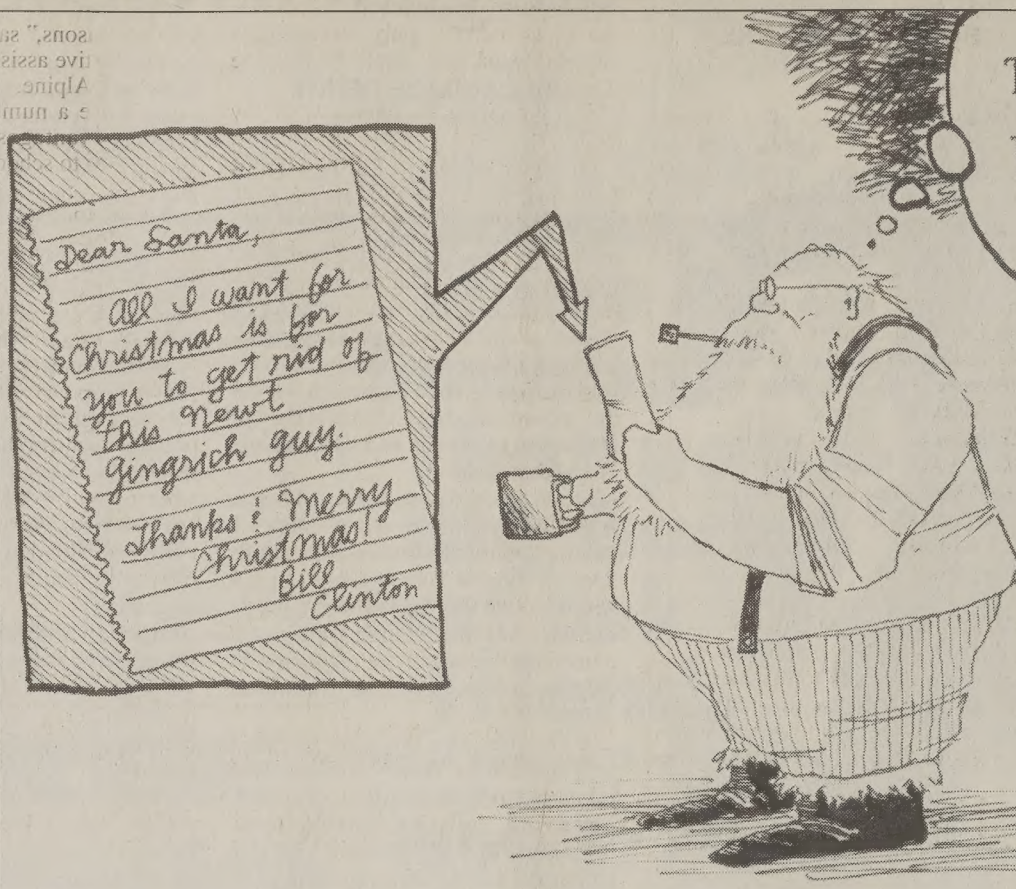 Dear Santa,
All I want for
Christmas is for
you to get rid of
this Newt
Gingrich guy.
Thanks & Merry
Christmas!
Bill
Clinton